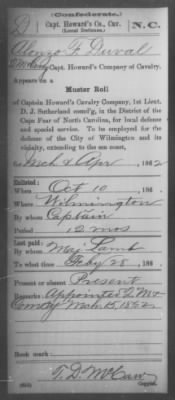 (Confederate.)
D Capt. Howard's Co., Cav. N.C.
(Local Defense.)
Alonzo F Duval
Capt. Howard's Company of Cavalry.
Appears on a
Muster Roll
of Captain Howard's Cavalry Company, 1st Lieut.
D. J. Sutherland comd'g, in the District of the
Cape Fear of North Carolina, for local defense
and special service. To be employed for the
defense of the City of Wilmington and its
vicinity, extending to the sea coast,
Mch & Apr, 1862
Enlisted:
When Oct 10, 186
Where Wilmington
By whom Captain
Period 12 mos
Last paid:
By whom Maj Lamb
To what time Feby 28, 186
Present or absent Present
Remarks: Appointed Q. M &
Comsy Mch 15, 1862
Book mark:
T. D. McCaw
Copyist.